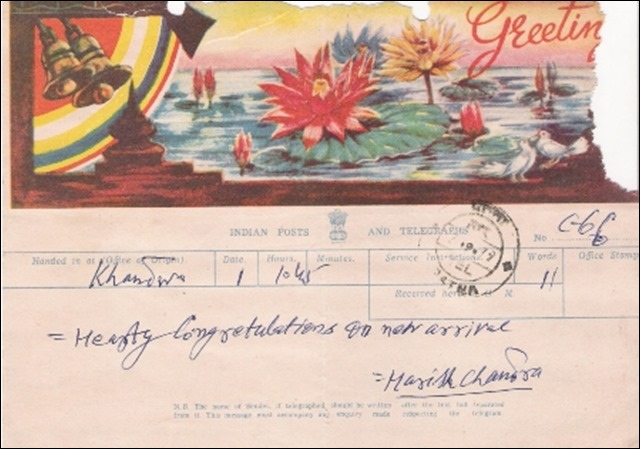 Greetin
INDIAN POSTS AND TELEGRAPHS
No C-66
Handed in at (Office of Origin). Date. Hours. Minutes. Service Instructions. Words Office Stamp
Khandwa 1 10.45 11
Received here at H. M.
= Hearty Congretulations on new arrival
= Harish Chandra
N.B. The name of Sender, if telegraphed, should be written after the text but separated
from it. This message must accompany any enquiry made respecting the telegram